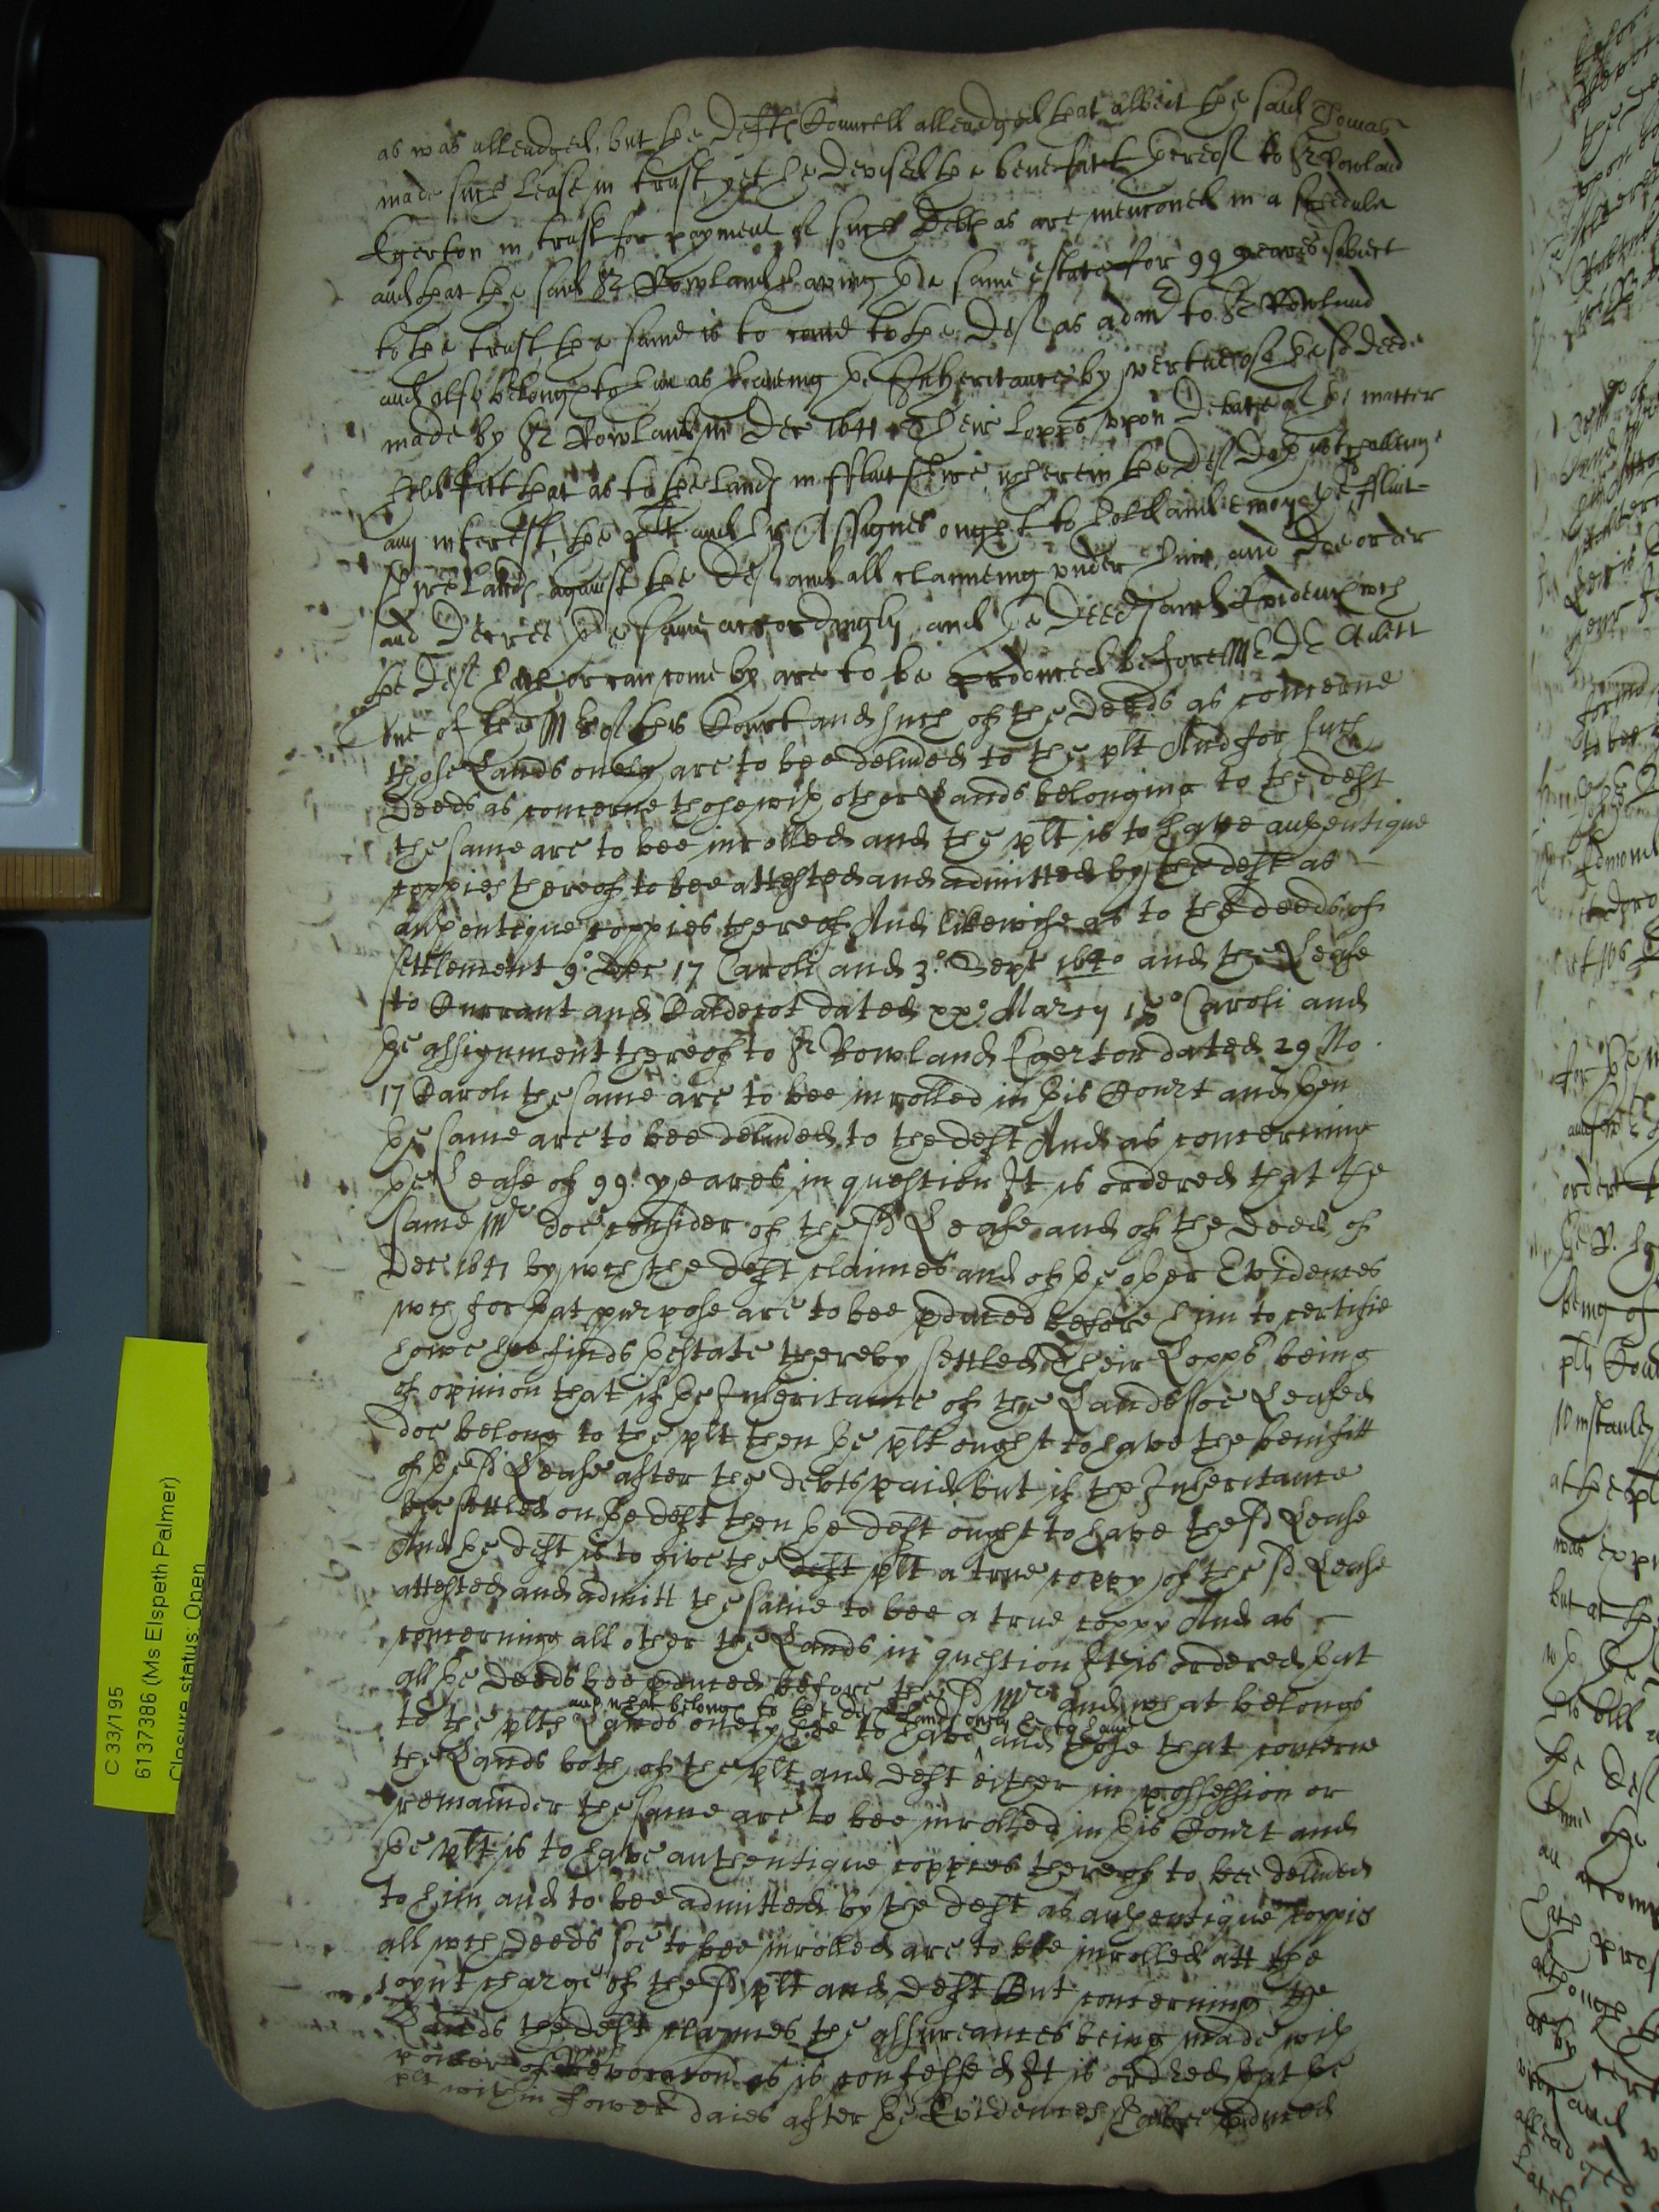 as was alleadged, but the Defts Councell alleadged that albeit the said Thomas
made such Lease in trust yet he devised the benefitt thereof to Sr Rowland
Egerton in trust for payment of such Debts as are menconed in a schedule
and that the said Sr Rowland having the same estate for 99 yeares subiect
to the trust, the same is to come to the Deft as admr to Sr Rowland
and also belongs to him as haveing the Inheritance by vertue of the sd deed
made by Sr Rowland in Dec 1641 Their Lopps upon Debate of the matter
held fitt that as to the Lands in fflintshire wherein the Deft doth not challenge
any interest, the plt and his Assignes ought to hold and enioy the fflint-
shire Lands against the Deft and all claimeing under him, and Doe order
and Decree the same accordingly, and the Deeds and Evidences wch
the Deft hath or can come by are to be produced before Mr Dr
one of the Mrs of this Court and such of the Deeds as concerne
those Lands onely are to bee delivred to the plt And for such
Deeds as concerne those with other Lands belonging to the deft
the same are to bee inrolled and the plt is to have authentique
coppies thereof to bee attested and admitted by the deft as
authentique coppies thereof And likewise as to the deeds of
settlement 9o Dec 17 Caroli and 3o Sept 1640 and the Lease
to Currant and Caldecot dated xxo Marcy Caroli and
the assignment thereof to Sr Rowland Egerton dated 29 No.
17 Caroli the same are to bee inrolled in this Court and then
the same are to bee delivred to the deft And as concerning
the Lease of 99 yeares in question It is ordered that the
same Mr doe consider of the sd Lease and of the deed of
Dec 1641 by wch the deft claimes and of the other Evidences
wch for that purpose are to bee pduced before him to certifie
howe hee finds the state thereby settled Their Lopps being
of opinion that if the Inheritance of the Landes soe Leased
doe belong to the plt then the plt ought to have the benifitt
of the sd Lease after the debts paid but if the Inheritance
bee settled on the deft then the deft ought to have the sd Lease
And the deft is to give the deft plt a true coppy of the sd Lease
attested and admitt the same to bee a true coppy And as
concerning all other the Lands in question It is ordered that
all the Deeds bee pduced before the sd Mr and what belongs
and what belongs to the Defts Lands onely hee to have
to the plts Lands onely hee to have and those that concerne
the Lands both of the plt and deft either in possession or
remainder the same are to bee inrolled in this Court and
the plt is to have authentique coppies thereof to bee delivred
to him and to bee admitted by the deft as authentique coppies
all wch Deeds soe to bee inrolled are to bee inrolled att the
ioynt charge of the sd plt and deft But concerning the
Lands the deft claymes the assureances being made with
power of Revocacon as is confessed It is ordred that the
plt within fower daies after the Evidences shalbee pduced
C 33/195
6137386 (Ms Elspeth Palmer)
Closure status: Open